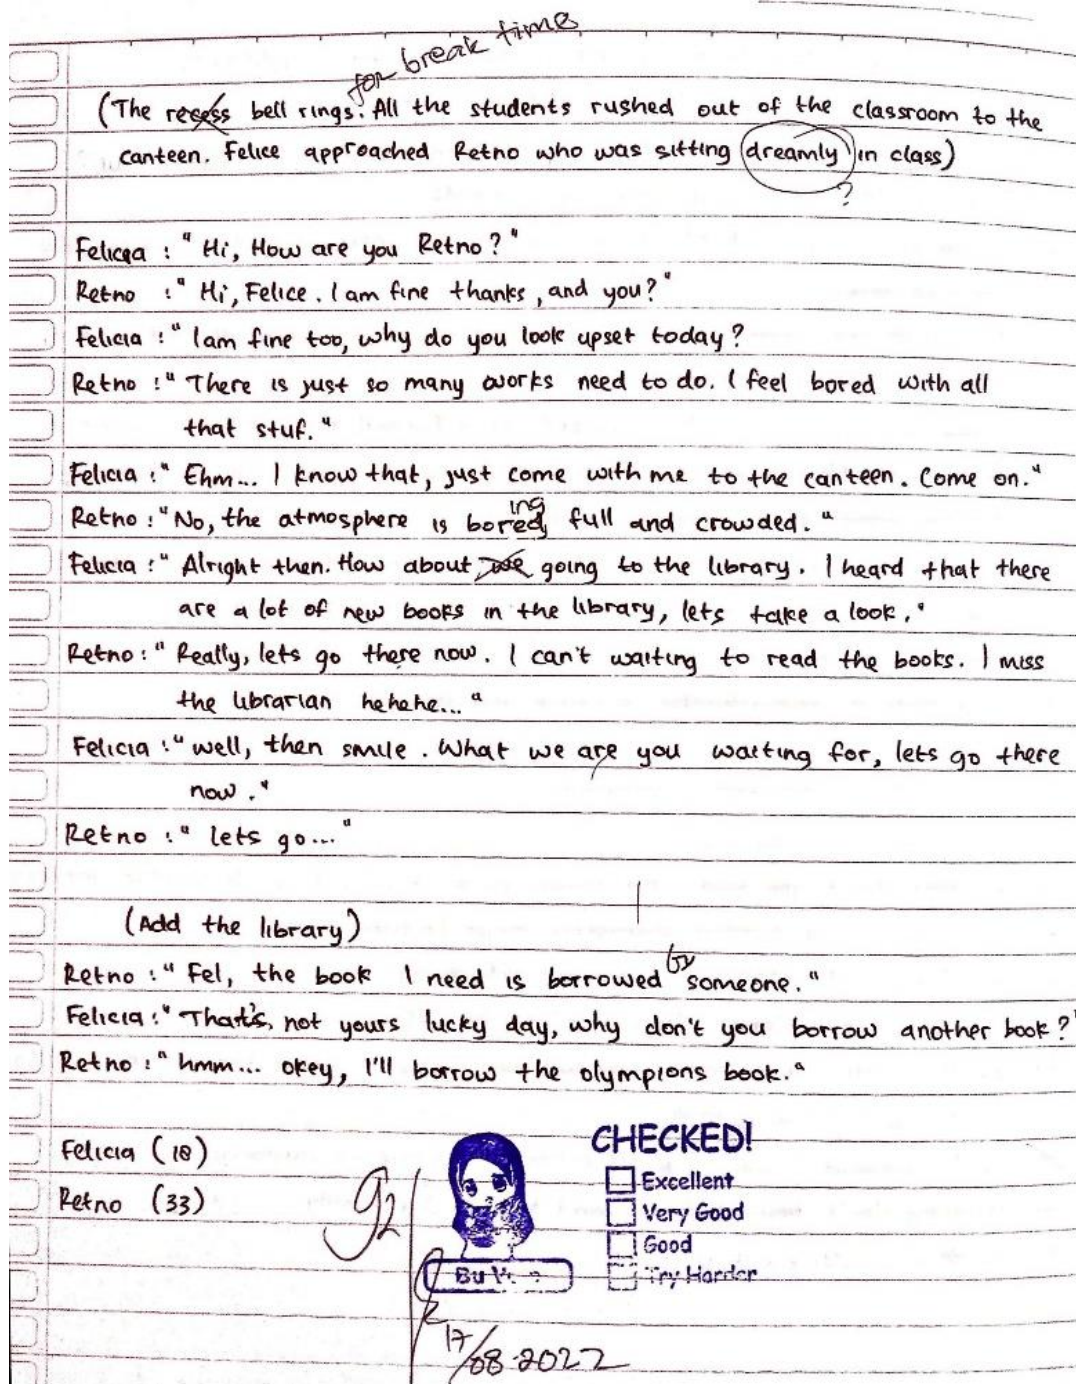 for break time
(The recess bell rings. All the students rushed out of the classroom to the
canteen. Felice approached Retno who was sitting dreamly in class)
?
Felicia : "Hi, How are you Retno?"
Retno : "Hi, Felice. I am fine thanks, and you?"
Felicia : "Iam fine too, why do you look upset today?
Retno : "There is just so many works need to do. I feel bored with all
that stuf."
Felicia : "Ehm... I know that, just come with me to the canteen. Come on."
ing
Retno : "No, the atmosphere is bored, full and crowded."
Felicia : "Alright then. How about going to the library. I heard that there
are a lot of new books in the library, lets take a look."
Retno : "Really, lets go there now. I can't waiting to read the books. I miss
the librarian hehehe..."
Felicia : "well, then smile. What we are you waiting for, lets go there
now."
Retno : "lets go..."
(Add the library)
by
Retno : "Fel, the book I need is borrowed someone."
Felicia : "That's, not yours lucky day, why don't you borrow another book?"
Retno : "hmm... okey, I'll borrow the olympions book."
Felicia (18)
Retno (33)
92
CHECKED!
Excellent
Very Good
Good
Try Harder
Bu
17/08-2022